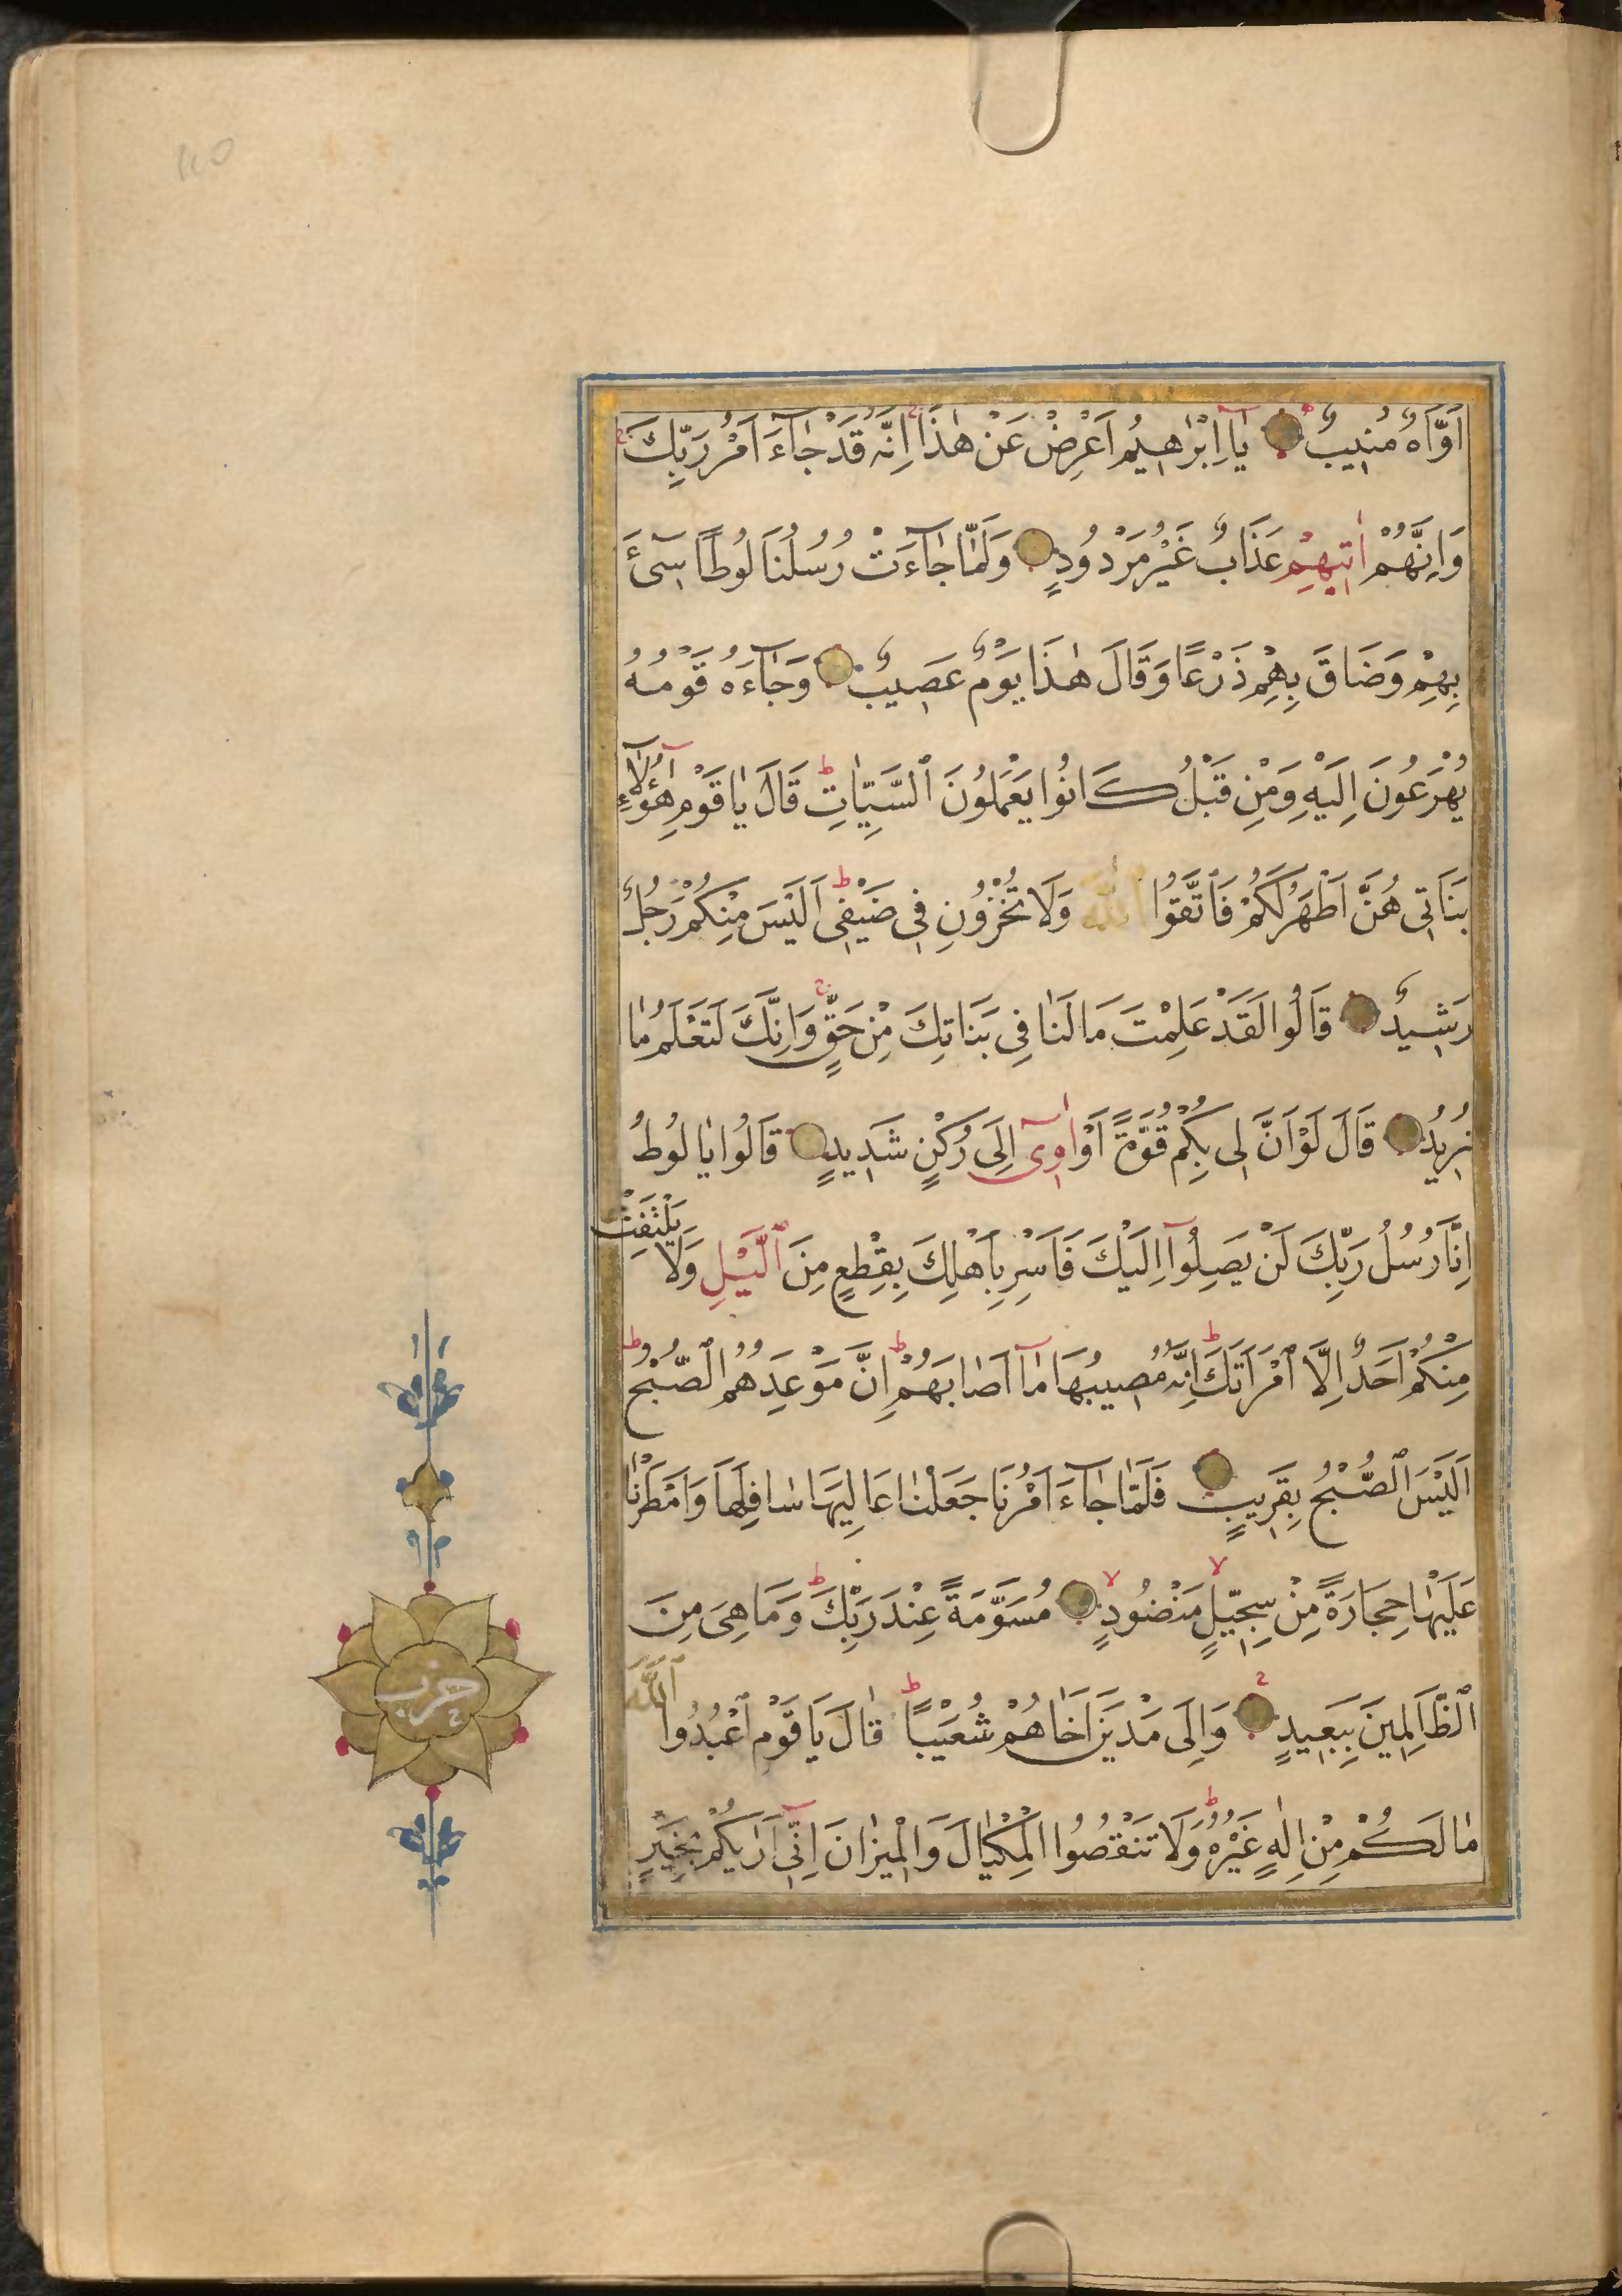 اَوَّاهٌ مُنِيبٌ يَآ اِبْرٰاهِيمُ اَعْرِضْ عَنْ هٰذَا اِنَّهُ قَدْ جٰآءَ اَمْرُ رَبِّكَ
وَاِنَّهُمْ اٰتِيهِمْ عَذَابٌ غَيْرُ مَرْدُودٍ وَلَمّٰا جٰآءَتْ رُسُلُنَا لُوطًا سِىٓءَ
بِهِمْ وَضَاقَ بِهِمْ ذَرْعًا وَقَالَ هٰذَا يَوْمٌ عَصِيبٌ وَجٰآءَهُ قَوْمُهُ
يُهْرَعُونَ اِلَيْهِ وَمِنْ قَبْلُ كَانُوا يَعْمَلُونَ ٱلسَّيِّاٰتِ ط قَالَ يٰا قَوْمِ هٰٓؤُلٰآءِ
بَنَاتِى هُنَّ اَطْهَرُ لَكُمْ فَاتَّقُوا ٱللّٰهَ وَلَا تُخْزُونِ فِى ضَيْفِى ط اَلَيْسَ مِنْكُمْ رَجُلٌ
رَشِيدٌ قَالُوا لَقَدْ عَلِمْتَ مَا لَنٰا فِى بَنَاتِكَ مِنْ حَقٍّ ج وَاِنَّكَ لَتَعْلَمُ مٰا
نُرِيدُ قَالَ لَوْ اَنَّ لِى بِكُمْ قُوَّةً اَوْ اٰوِىٓ اِلَى رُكْنٍ شَدِيدٍ قَالُوا يٰا لُوطُ
اِنَّا رُسُلُ رَبِّكَ لَنْ يَصِلُوٓا اِلَيْكَ فَاَسْرِ بِاَهْلِكَ بِقِطْعٍ مِنَ ٱلَّيْلِ وَلَا يَلْتَفِتْ
مِنْكُمْ اَحَدٌ اِلَّا ٱمْرَاَتَكَ ط اِنَّهُ مُصِيبُهَا مٰآ اَصٰابَهُمْ ط اِنَّ مَوْعِدَهُمُ ٱلصُّبْحُ ط
اَلَيْسَ ٱلصُّبْحُ بِقَرِيبٍ فَلَمّٰا جٰآءَ اَمْرُنَا جَعَلْنٰا عَالِيَهَا سٰافِلَهَا وَاَمْطَرْنٰا
عَلَيْهٰا حِجَارَةً مِنْ سِجِّيلٍ لا مَنْضُودٍ لا مُسَوَّمَةً عِنْدَ رَبِّكَ ط وَمَا هِىَ مِنَ
ٱلظَّالِمِينَ بِبَعِيدٍ وَاِلَى مَدْيَنَ اَخَاهُمْ شُعَيْبًا ط قٰالَ يَا قَوْمِ ٱعْبُدُوا ٱللّٰهَ
مٰا لَكُمْ مِنْ اِلٰهٍ غَيْرُهُ ط وَلَا تَنْقُصُوا الْمِكْيٰالَ وَالْمِيزٰانَ اِنِّىٓ اَرٰيكُمْ بِخَيْرٍ
حزب